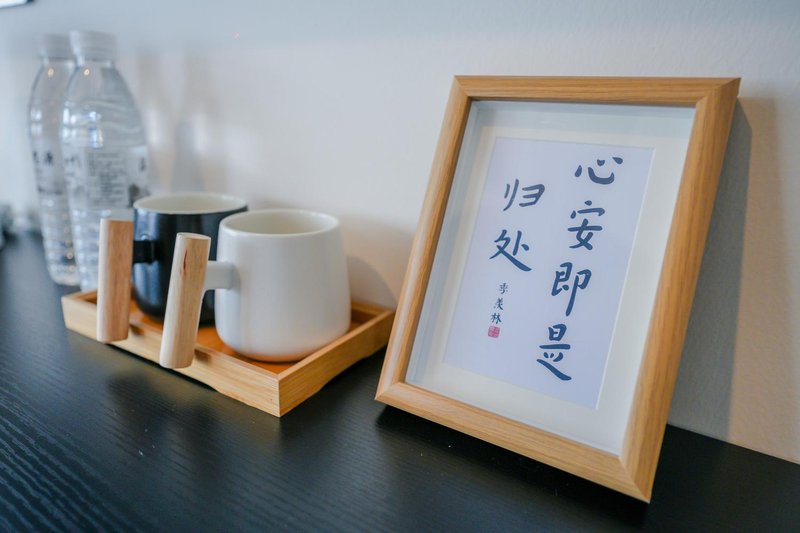 心安即是
归处
季羡林